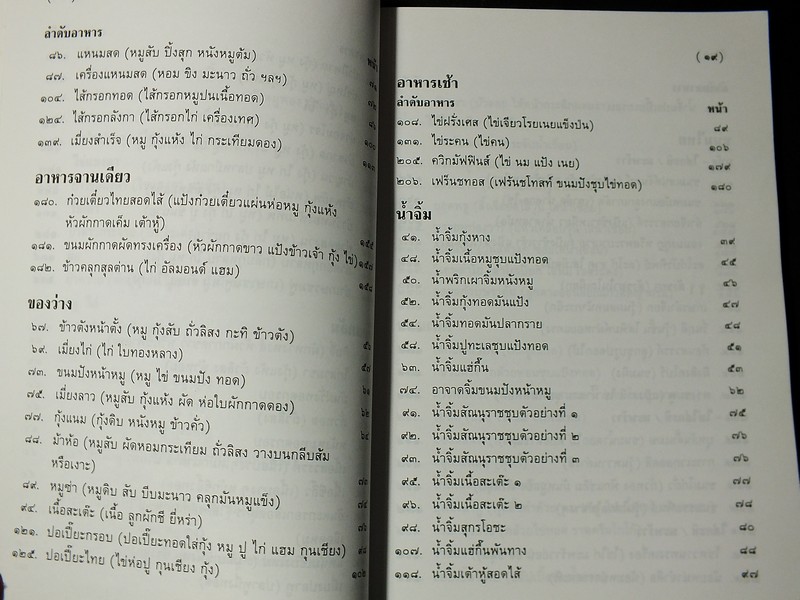 ลำดับอาหาร
หน้า
๘๖. แหนมสด (หมูสับ ปิ้งสุก หนังหมูต้ม)
๘๗. เครื่องแหนมสด (หอม ขิง มะนาว ถั่ว ฯลฯ) ๗๑
๑๐๔. ไส้กรอกทอด (ไส้กรอกหมูปนเนื้อทอด) ๗๒
๑๒๔. ไส้กรอกลังกา (ไส้กรอกไก่ เครื่องเทศ) ๘๖
๑๓๙. เมี่ยงสำเร็จ (หมู กุ้งแห้ง ไก่ กระเทียมดอง)
๑๑๓
อาหารจานเดียว
๑๘๐. ก๋วยเตี๋ยวไทยสอดไส้ (แป้งก๋วยเตี๋ยวแผ่นห่อหมู กุ้งแห้ง
หัวผักกาดเค็ม เต้าหู้) ๑๕๕
๑๘๑. ขนมผักกาดผัดทรงเครื่อง (หัวผักกาดขาว แป้งข้าวเจ้า กุ้ง ไข่) ๑๕๗
๑๘๒. ข้าวคลุกสุลต่าน (ไก่ อัลมอนด์ แฮม) ๑๕๘
ของว่าง
๖๗. ข้าวตังหน้าตั้ง (หมู กุ้งสับ ถั่วลิสง กะทิ ข้าวตัง)
๖๙. เมี่ยงไก่ (ไก่ ใบทองหลาง) ๕๗
๗๓. ขนมปังหน้าหมู (หมู ไข่ ขนมปัง ทอด) ๖๑
๗๕. เมี่ยงลาว (หมูสับ กุ้งแห้ง ผัด ห่อใบผักกาดดอง) ๖๒
๗๗. กุ้งแนม (กุ้งดิบ หนังหมู ข้าวคั่ว) ๖๔
๘๘. ม้าห้อ (หมูสับ ผัดหอมกระเทียม ถั่วลิสง วางบนกลีบส้ม
หรือเงาะ)
๘๙. หมูซ่า (หมูดิบ สับ บีบมะนาว คลุกมันหมูแข็ง) ๗๔
๙๔. เนื้อสะเต๊ะ (เนื้อ ลูกผักชี ยี่หร่า) ๗๖
๑๒๑. ปอเปี๊ยะกรอบ (ปอเปี๊ยะทอดใส่กุ้ง หมู ปู ไก่ แฮม กุนเชียง) ๙๘
๑๒๕. ปอเปี๊ยะไทย (ไข่ห่อปู กุนเชียง กุ้ง) ๑๐๒
(๑๙)
อาหารเช้า
ลำดับอาหาร หน้า
๑๐๘. ไข่ฝรั่งเศส (ไข่เจียวโรยเนยแข็งป่น) ๘๙
๑๓๑. ไข่ระคน (ไข่คน) ๑๐๖
๒๐๕. ควิกมัฟฟินส์ (ไข่ นม แป้ง เนย) ๑๗๙
๒๐๖. เฟร็นชทอส (เฟรันชโทสท์ ขนมปังชุบไข่ทอด) ๑๘๐
น้ำจิ้ม
๔๑. น้ำจิ้มกุ้งหาง ๓๙
๔๘. น้ำจิ้มเนื้อหมูชุบแป้งทอด ๔๕
๕๐. น้ำพริกเผาจิ้มหนังหมู ๔๖
๕๒. น้ำจิ้มกุ้งทอดมันแป้ง ๔๗
๕๔. น้ำจิ้มทอดมันปลากราย ๔๘
๕๘. น้ำจิ้มปูทะเลชุบแป้งทอด ๕๑
๖๓. น้ำจิ้มแฮ่กึ๊น ๕๓
๗๔. อาจาดจิ้มขนมปังหน้าหมู ๖๒
๙๑. น้ำจิ้มสัณนุราชชุบตัวอย่างที่ ๑ ๗๕
๙๒. น้ำจิ้มสัณนุราชชุบตัวอย่างที่ ๒ ๗๖
๙๓. น้ำจิ้มสัณนุราชชุบตัวอย่างที่ ๓ ๗๖
๙๕. น้ำจิ้มเนื้อสะเต๊ะ ๑ ๗๗
๙๖. น้ำจิ้มเนื้อสะเต๊ะ ๒ ๗๘
๙๘. น้ำจิ้มสุกรโอชะ ๘๐
๑๐๗. น้ำจิ้มแฮ่กึ๊นพันทาง ๘๘
๑๑๘. น้ำจิ้มเต้าหู้สอดไส้ ๙๗